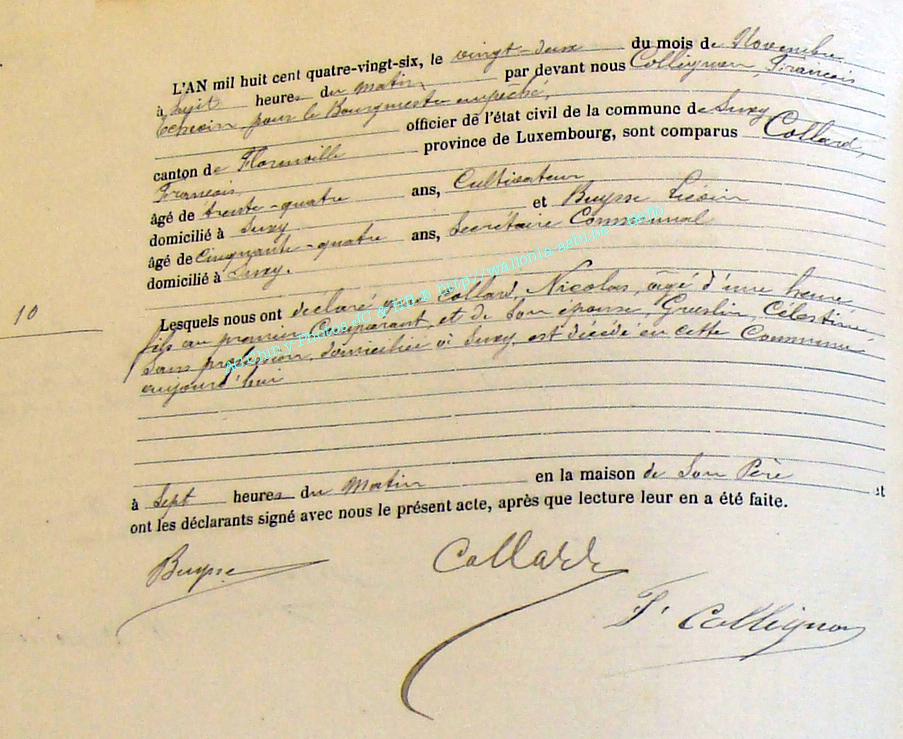 L'AN mil huit cent quatre-vingt-six, le vingt-deux du mois de Novembre
à huit heures du Matin par devant nous Collignon, Francois
Echevin pour le Bourgmestre empeché,
officier de l'état civil de la commune de Suxy
canton de Florenville province de Luxembourg, sont comparus Collard,
Francois
âgé de trente-quatre ans, Cultivateur
domicilié à Suxy et Buysse
âgé de Cinquante-quatre ans, Secrétaire Communal
domicilié à Suxy.
Lesquels nous ont déclaré que Collard, Nicolas, âgé d'une heure
10
fils au premier Comparant, et de Son épouse, Célestine
Sans profession, domiciliée à Suxy, est décédé en cette Commune
aujourd'hui
à Sept heures du Matin en la maison de Son Père et
ont les déclarants signé avec nous le présent acte, après que lecture leur en a été faite.
Buysse Collard
F. Collignon
http://wallonia-asbl.be